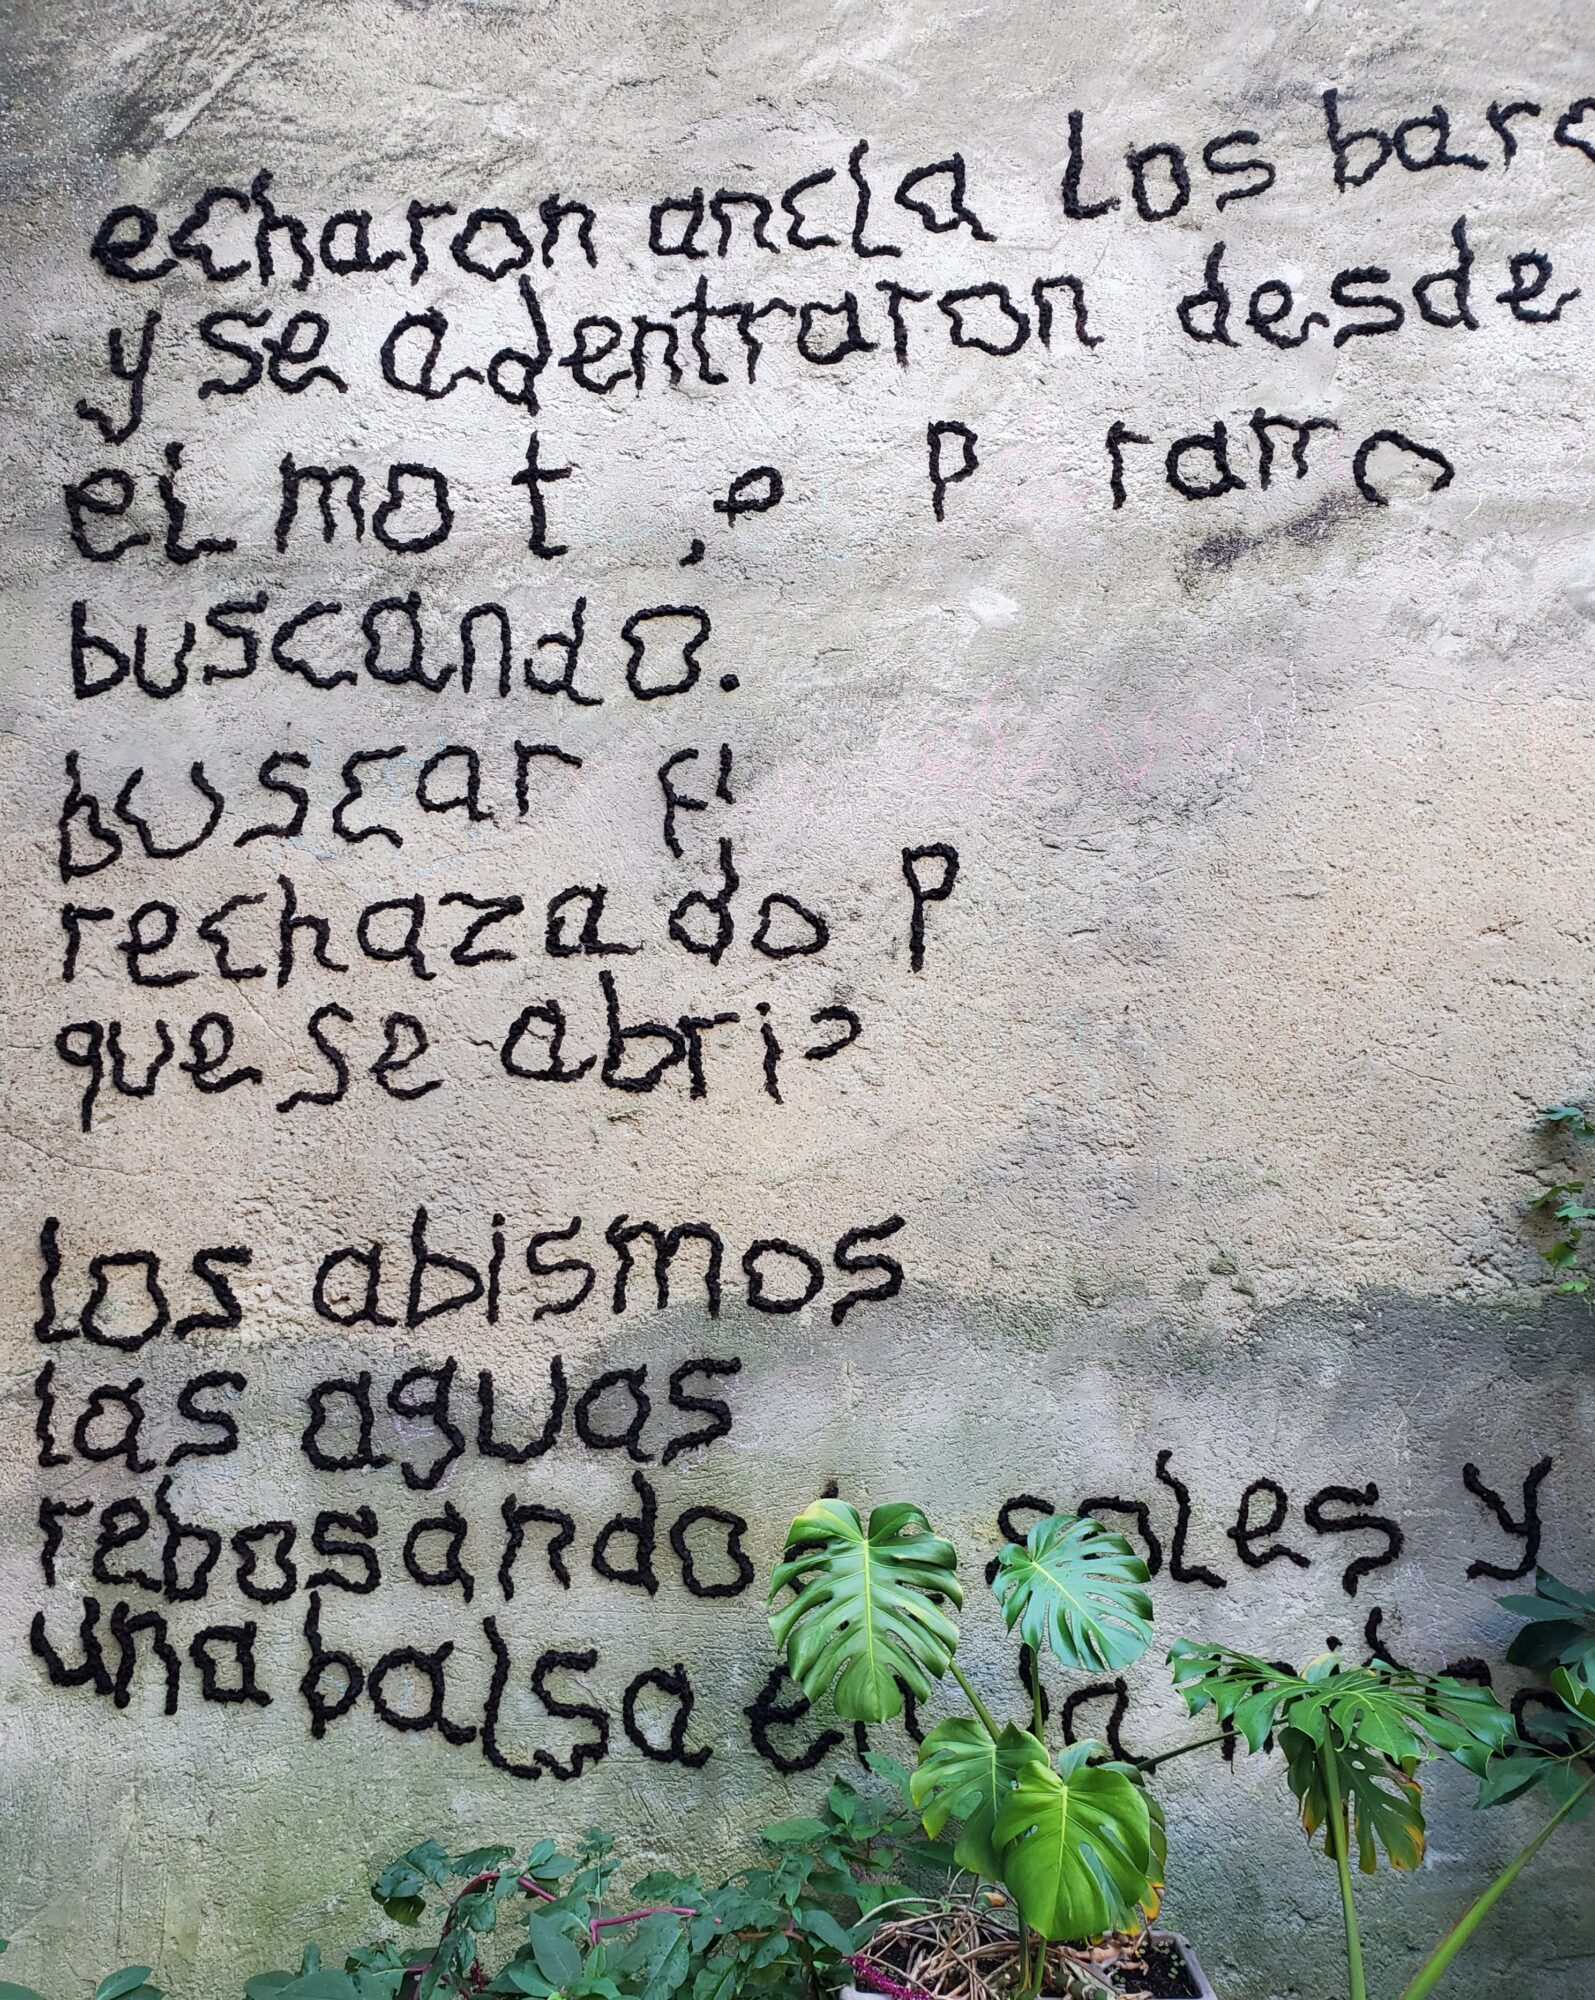 echaron ancla los barc
y se adentraron desde
el mo t , e P ramo
buscando.
buscar el
rechazado P
que se abri
los abismos
las aguas
rebosando soles y
una balsa en la